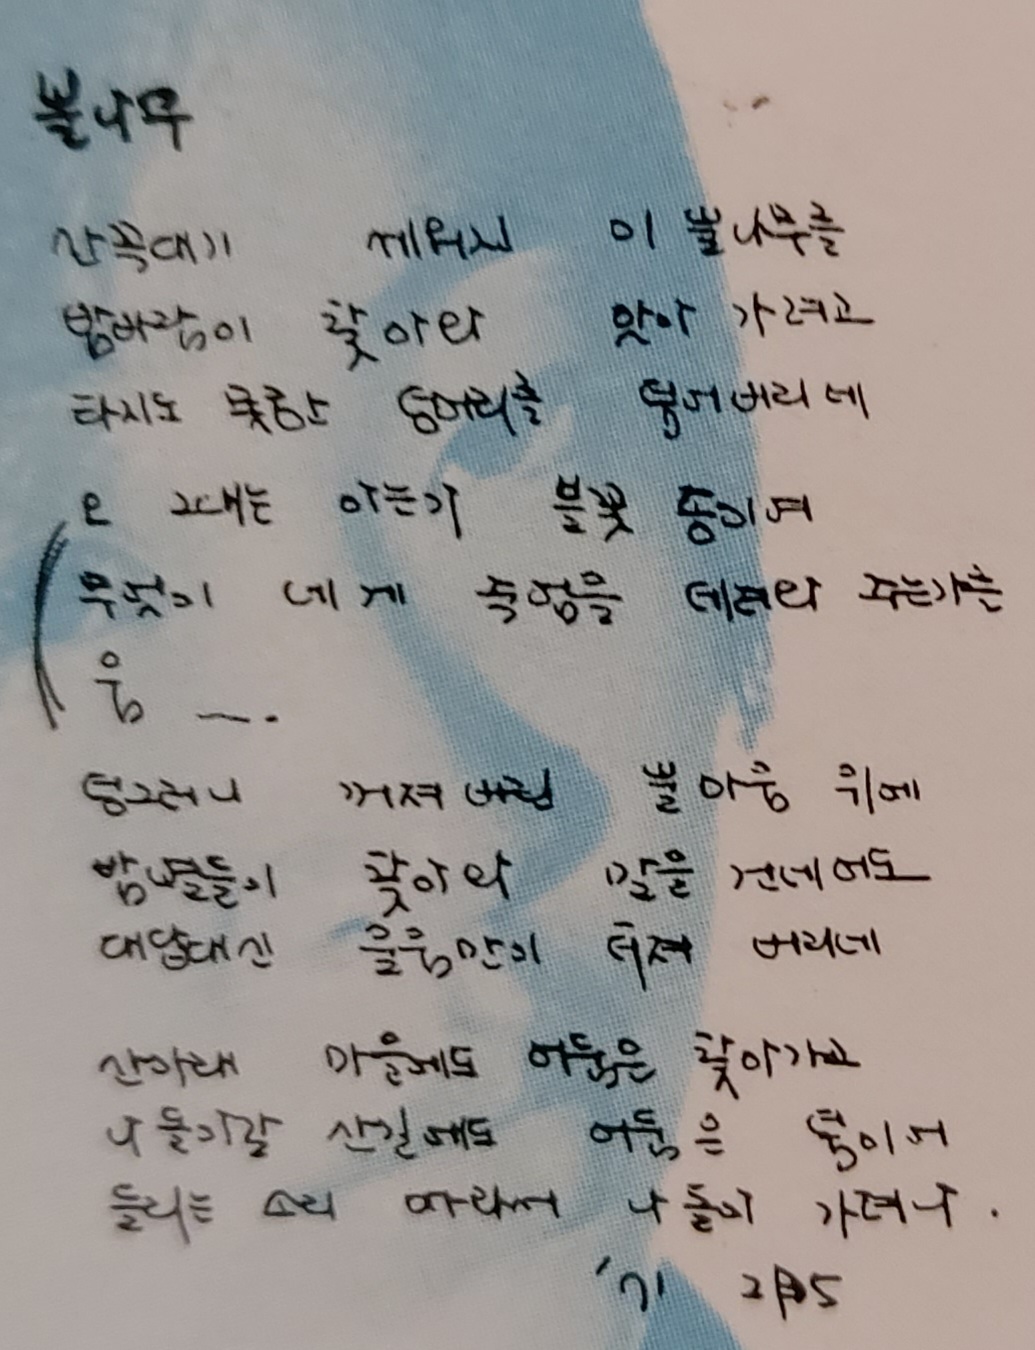 불나무
산꼭대기 세워진 이 불나무를
밤바람이 찾아와 앗아 가려고
타지도 못한 덩어리를 덮어버리네
오 그대는 아는가 불꽃 송이여
무엇이 내게 죽엄을 데려와 주는가를
음 —.
덩그러니 꺼져버린 불 마음 위에
밤별들이 찾아와 말을 건네어도
대답대신 울음만이 터져 버리네
산아래 마을에도 어둠은 찾아가고
나 돌아갈 산길에도 어둠은 덮이어
들리는 소리 따라서 나 돌아 가려나.